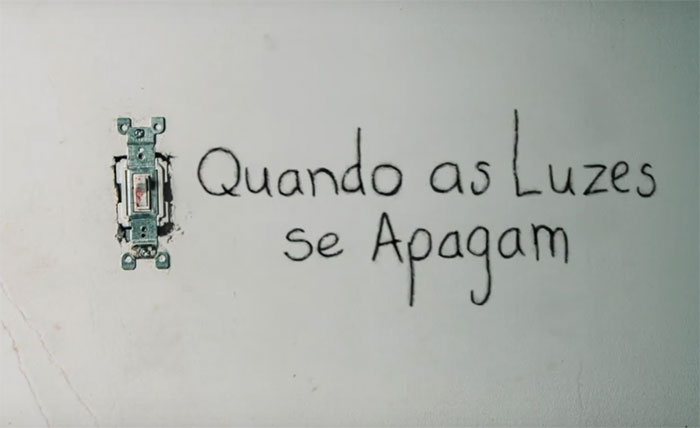 Quando as Luzes
se Apagam